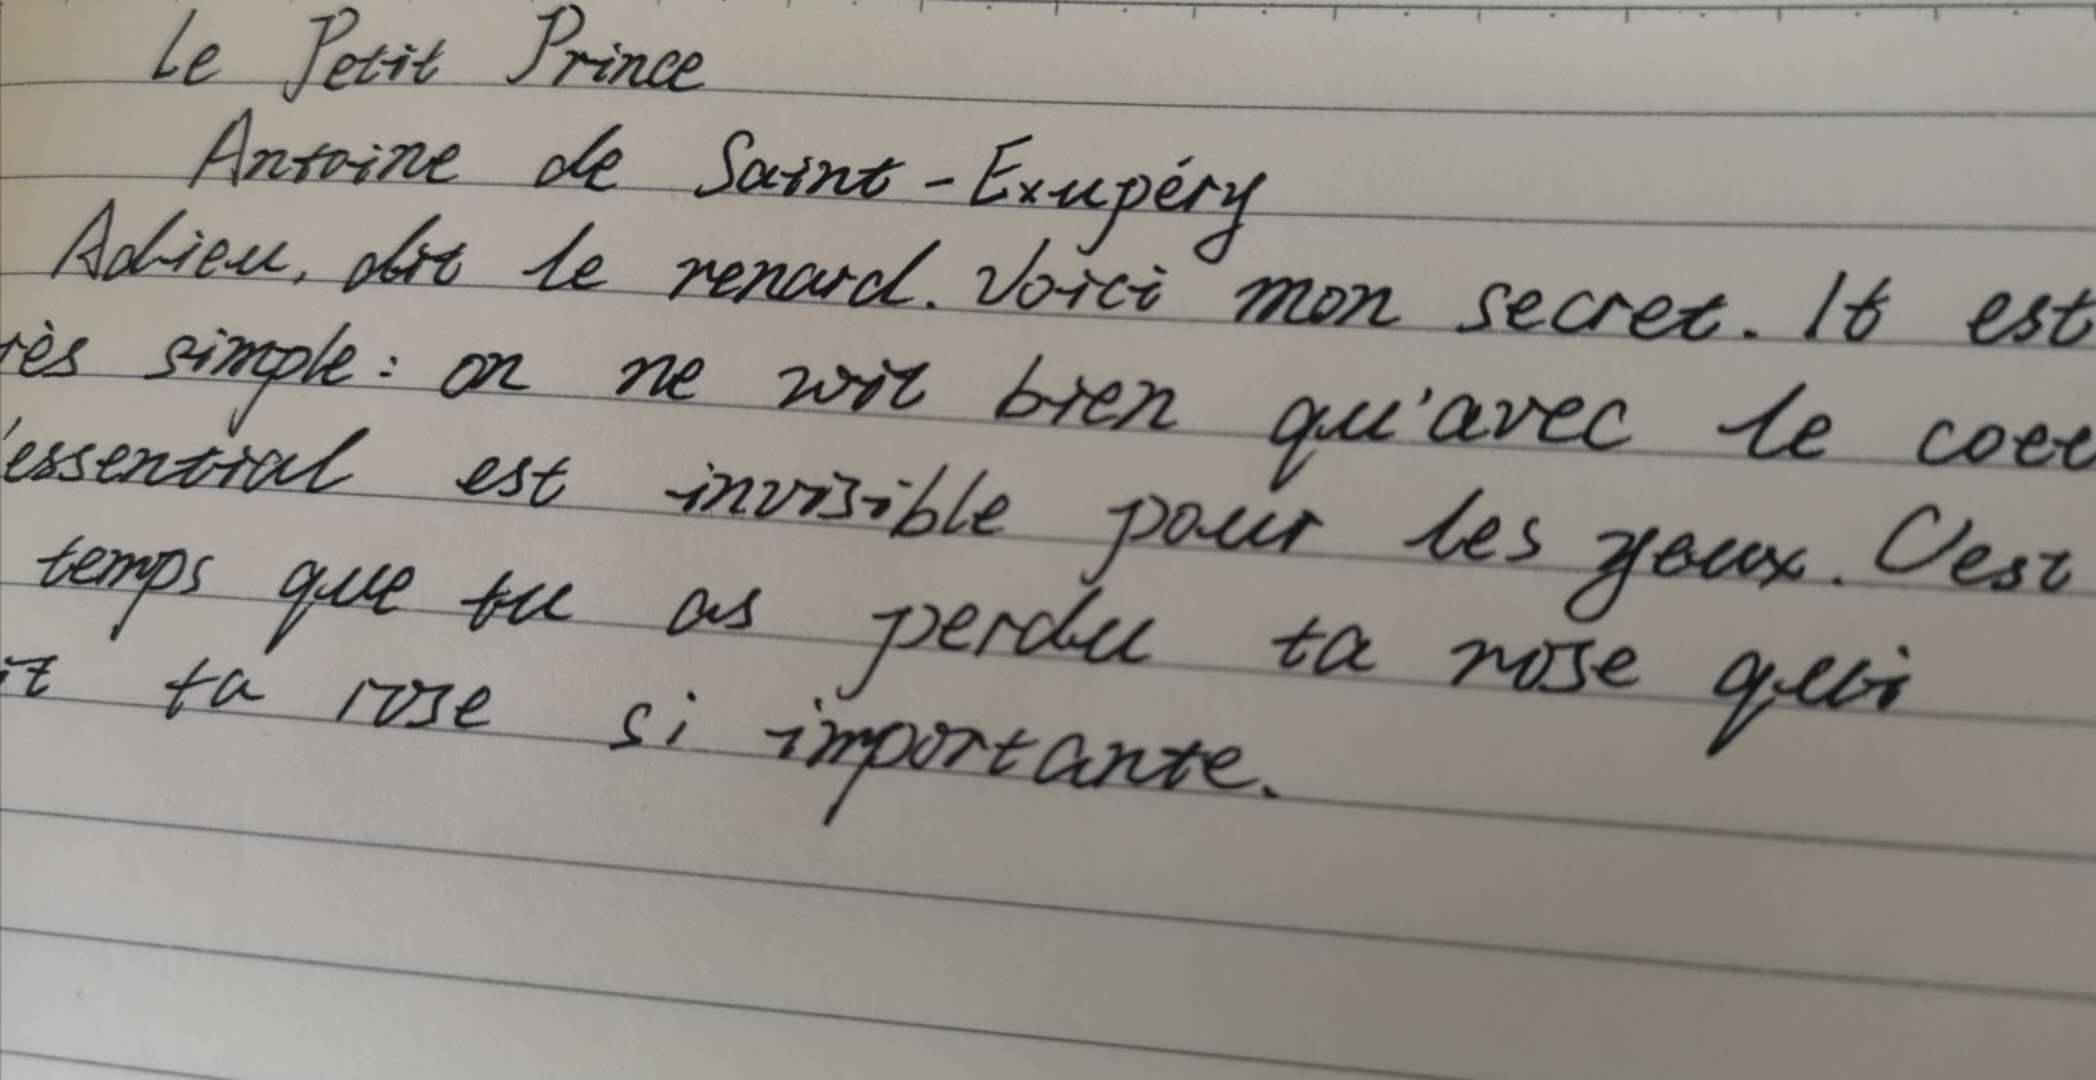 Le Petit Prince
Antoine de Saint-Exupéry
Adieu, dit le renard. Voici mon secret. It est
rès simple: on ne voit bien qu'avec le coeu
'essential est invisible pour les yeux. C'est
temps que tu as perdu ta rose qui
it ta rose si importante.